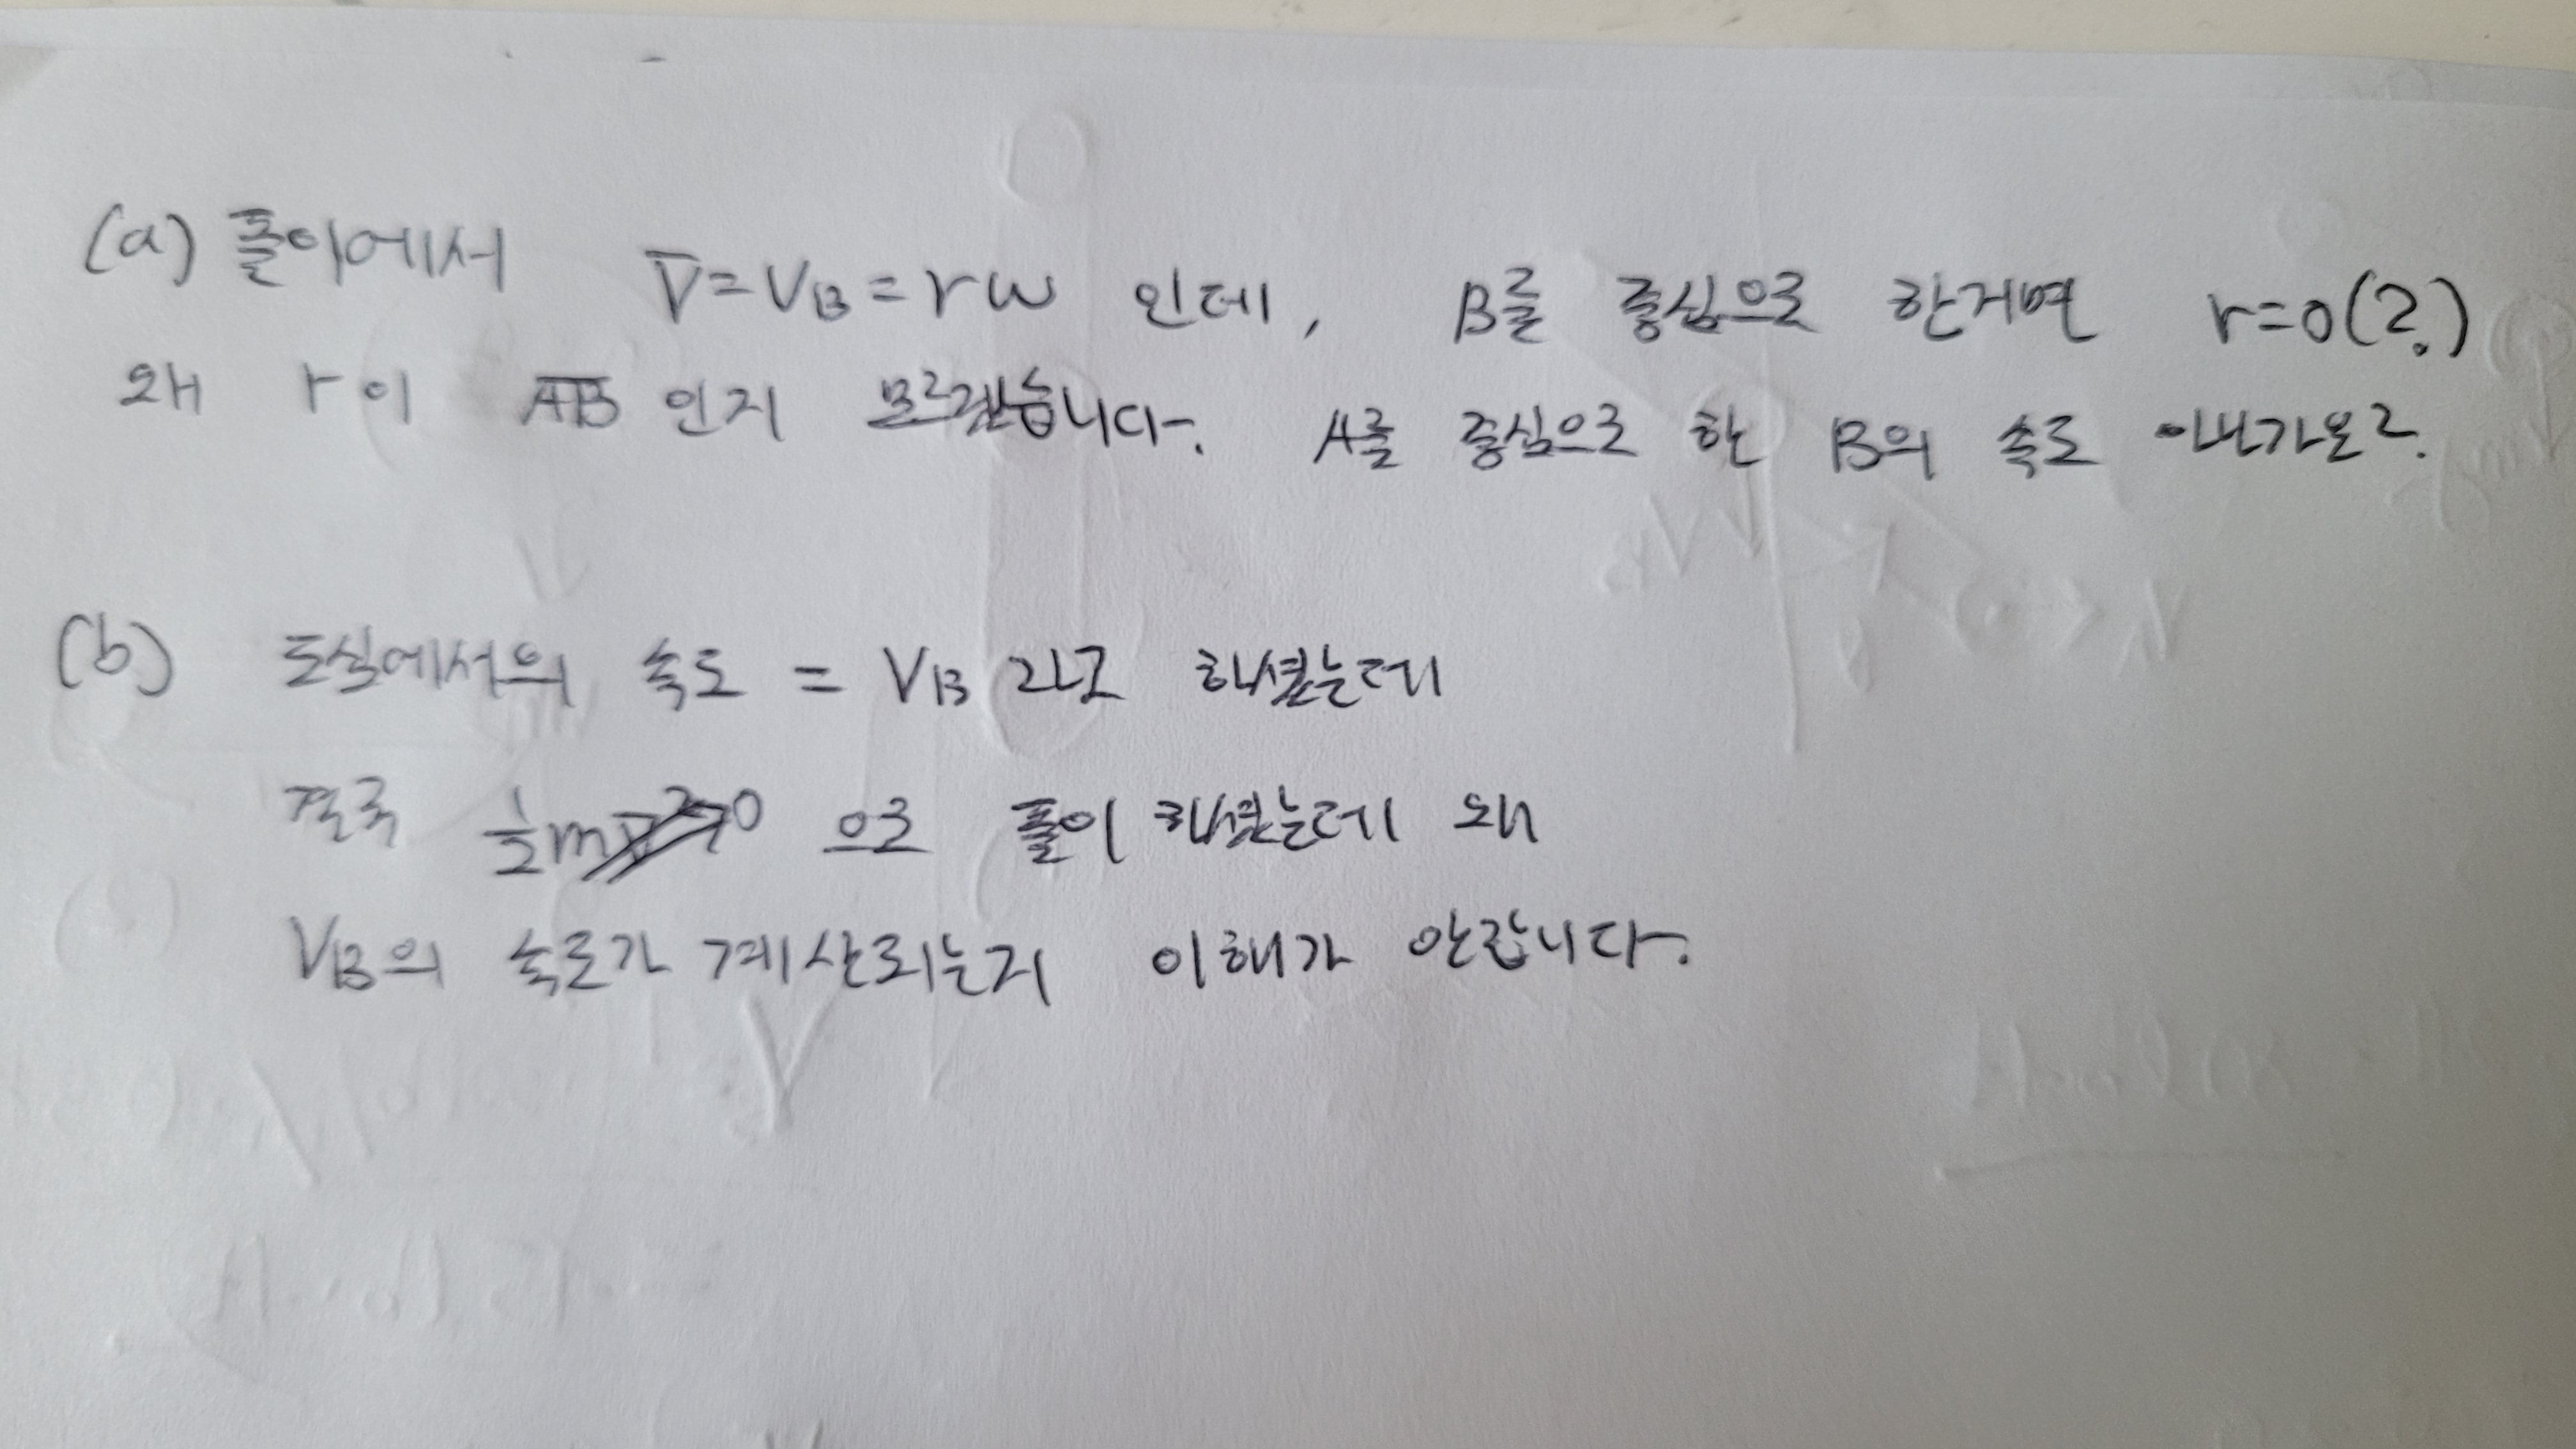 (a) 풀이에서 V̅ = V_B = rω 인데, B를 중심으로 한거면 r=0(?)
왜 r이 A̅B̅ 인지 모르겠습니다. A를 중심으로 한 B의 속도 아닌가요?
(b) 도심에서의 속도 = V_B 라고 하셨는데
결국 ½mV̅²→0 으로 풀이 하셨는데 왜
V_B의 속도가 계산되는지 이해가 안갑니다.